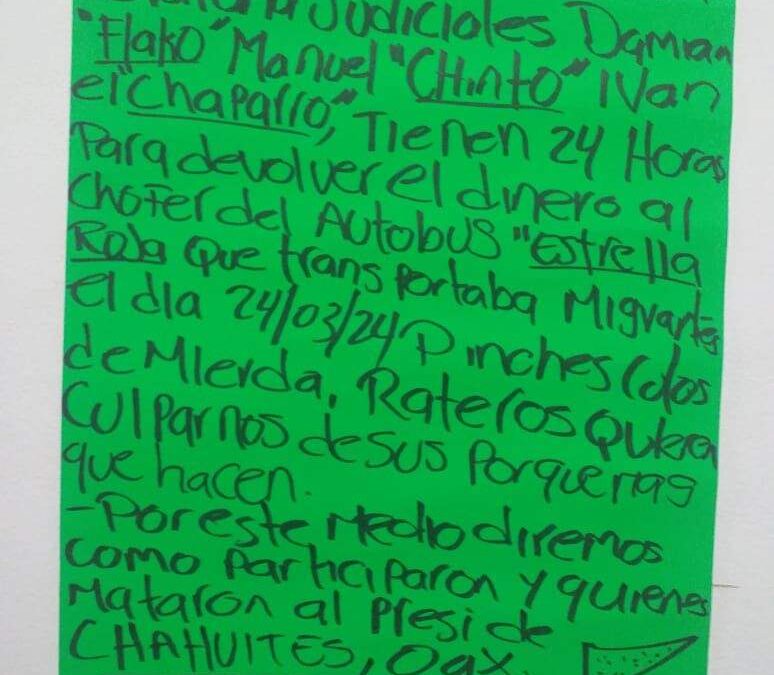 Judiciales Damian
"Flako" Manuel "CHinto" IVan
el "Chaparro," Tienen 24 Horas
Para devolver el dinero al
Chofer del Autobus "Estrella
Roja que transportaba Migrantes
el dia 24/03/24 Pinches
de Mierda. Rateros Quieren
Culparnos de sus Porquerias
que hacen.
-Por este Medio diremos
como participaron y quienes
Mataron al Presi de
CHAHUITES, Oax.